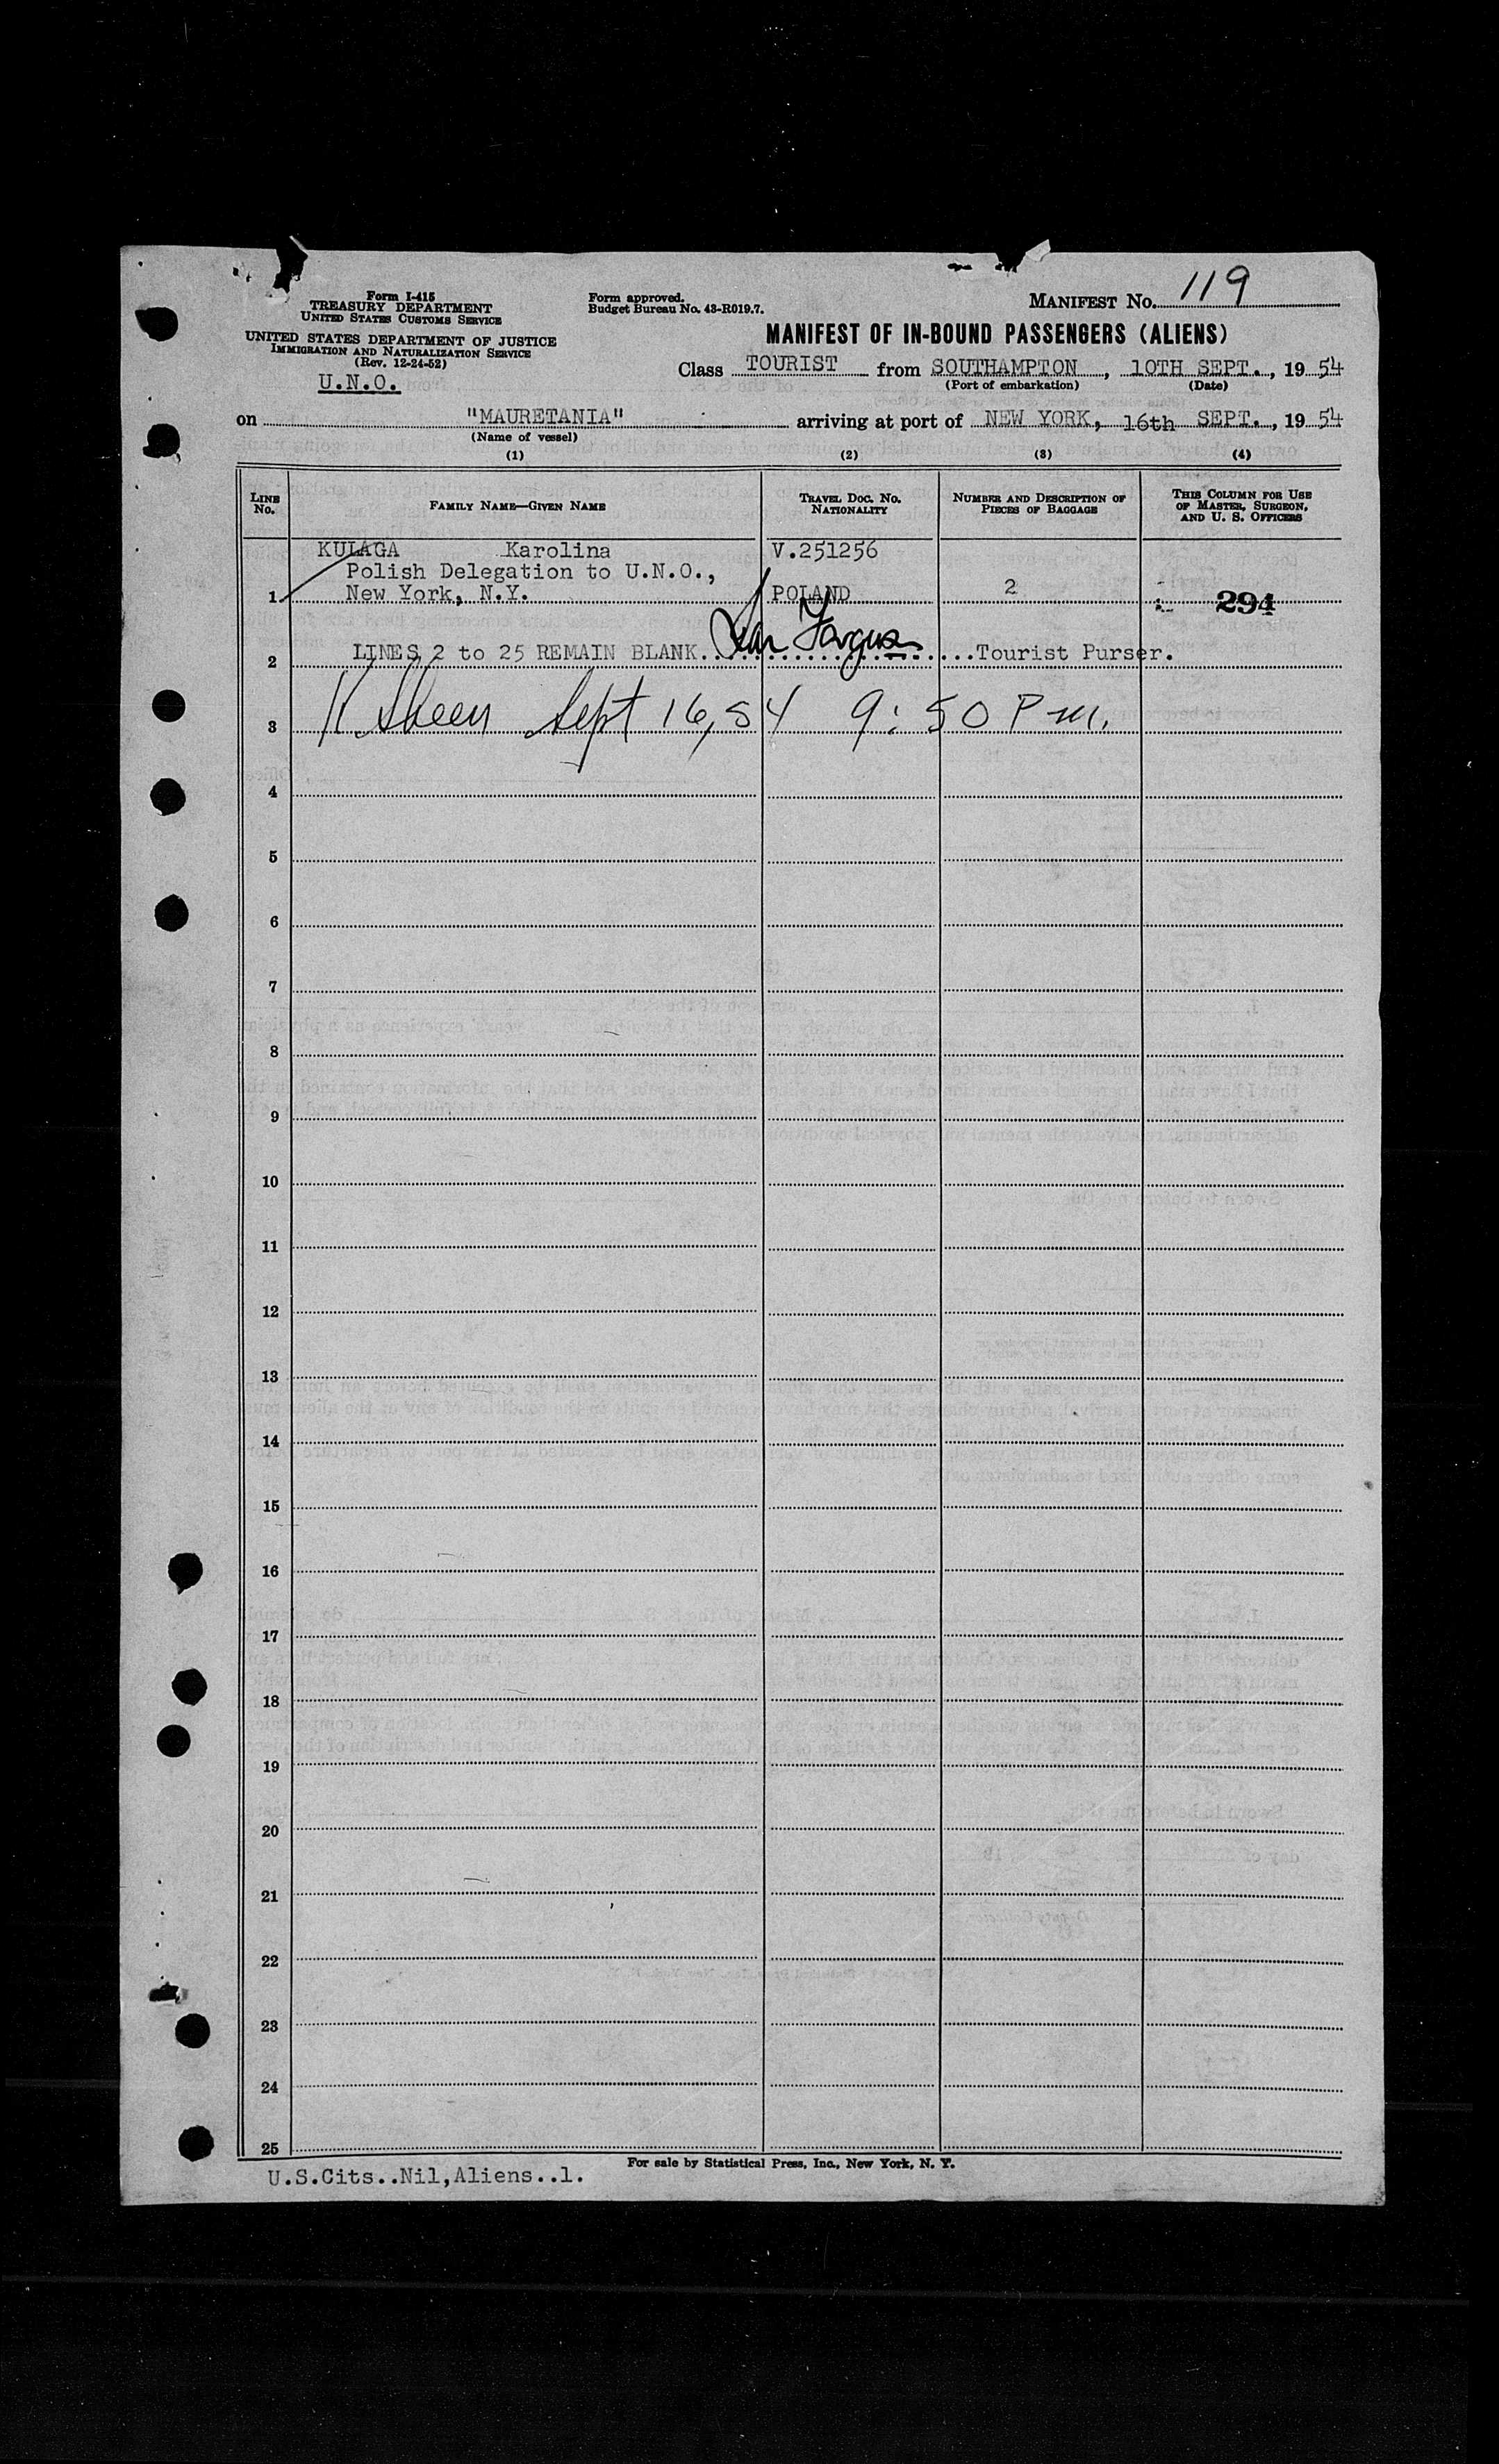 Form I-415
TREASURY DEPARTMENT
UNITED STATES CUSTOMS SERVICE
UNITED STATES DEPARTMENT OF JUSTICE
IMMIGRATION AND NATURALIZATION SERVICE
(Rev. 12-24-52)
U.N.O.
Form approved.
Budget Bureau No. 43-R019.7.
MANIFEST No. 119
MANIFEST OF IN-BOUND PASSENGERS (ALIENS)
Class TOURIST from SOUTHAMPTON, 10TH SEPT., 19 54
(Port of embarkation) (Date)
on "MAURETANIA" arriving at port of NEW YORK, 16th SEPT., 19 54
(Name of vessel)
(1) (2) (3) (4)
LINE No. FAMILY NAME—GIVEN NAME TRAVEL DOC. No. NATIONALITY NUMBER AND DESCRIPTION OF PIECES OF BAGGAGE THIS COLUMN FOR USE OF MASTER, SURGEON, AND U. S. OFFICERS
KULAGA Karolina V.251256
Polish Delegation to U.N.O.,
1 New York, N.Y. POLAND 2 294
2 LINES 2 to 25 REMAIN BLANK. Tourist Purser.
3 Sept 16, 54 9:50 P m.
4
5
6
7
8
9
10
11
12
13
14
15
16
17
18
19
20
21
22
23
24
25
For sale by Statistical Press, Inc., New York, N. Y.
U.S.Cits..Nil,Aliens..1.